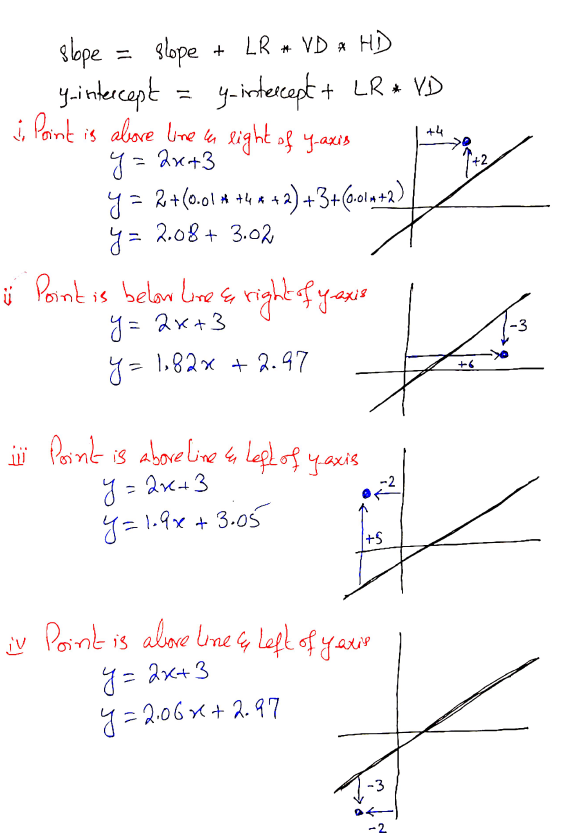 slope = slope + LR * VD * HD
y-intercept = y-intercept + LR * VD
i, Point is above line & right of y-axis
y = 2x+3
y = 2+(0.01 * +4 * +2)+3+(0.01*+2)
y = 2.08 + 3.02
+4
+2
ii Point is below line & right of y-axis
y = 2x+3
y = 1.82x + 2.97
-3
+6
iii Point is above line & left of y-axis
y = 2x+3
y = 1.9x + 3.05
-2
+5
iv Point is above line & left of y-axis
y = 2x+3
y = 2.06x + 2.97
-3
-2